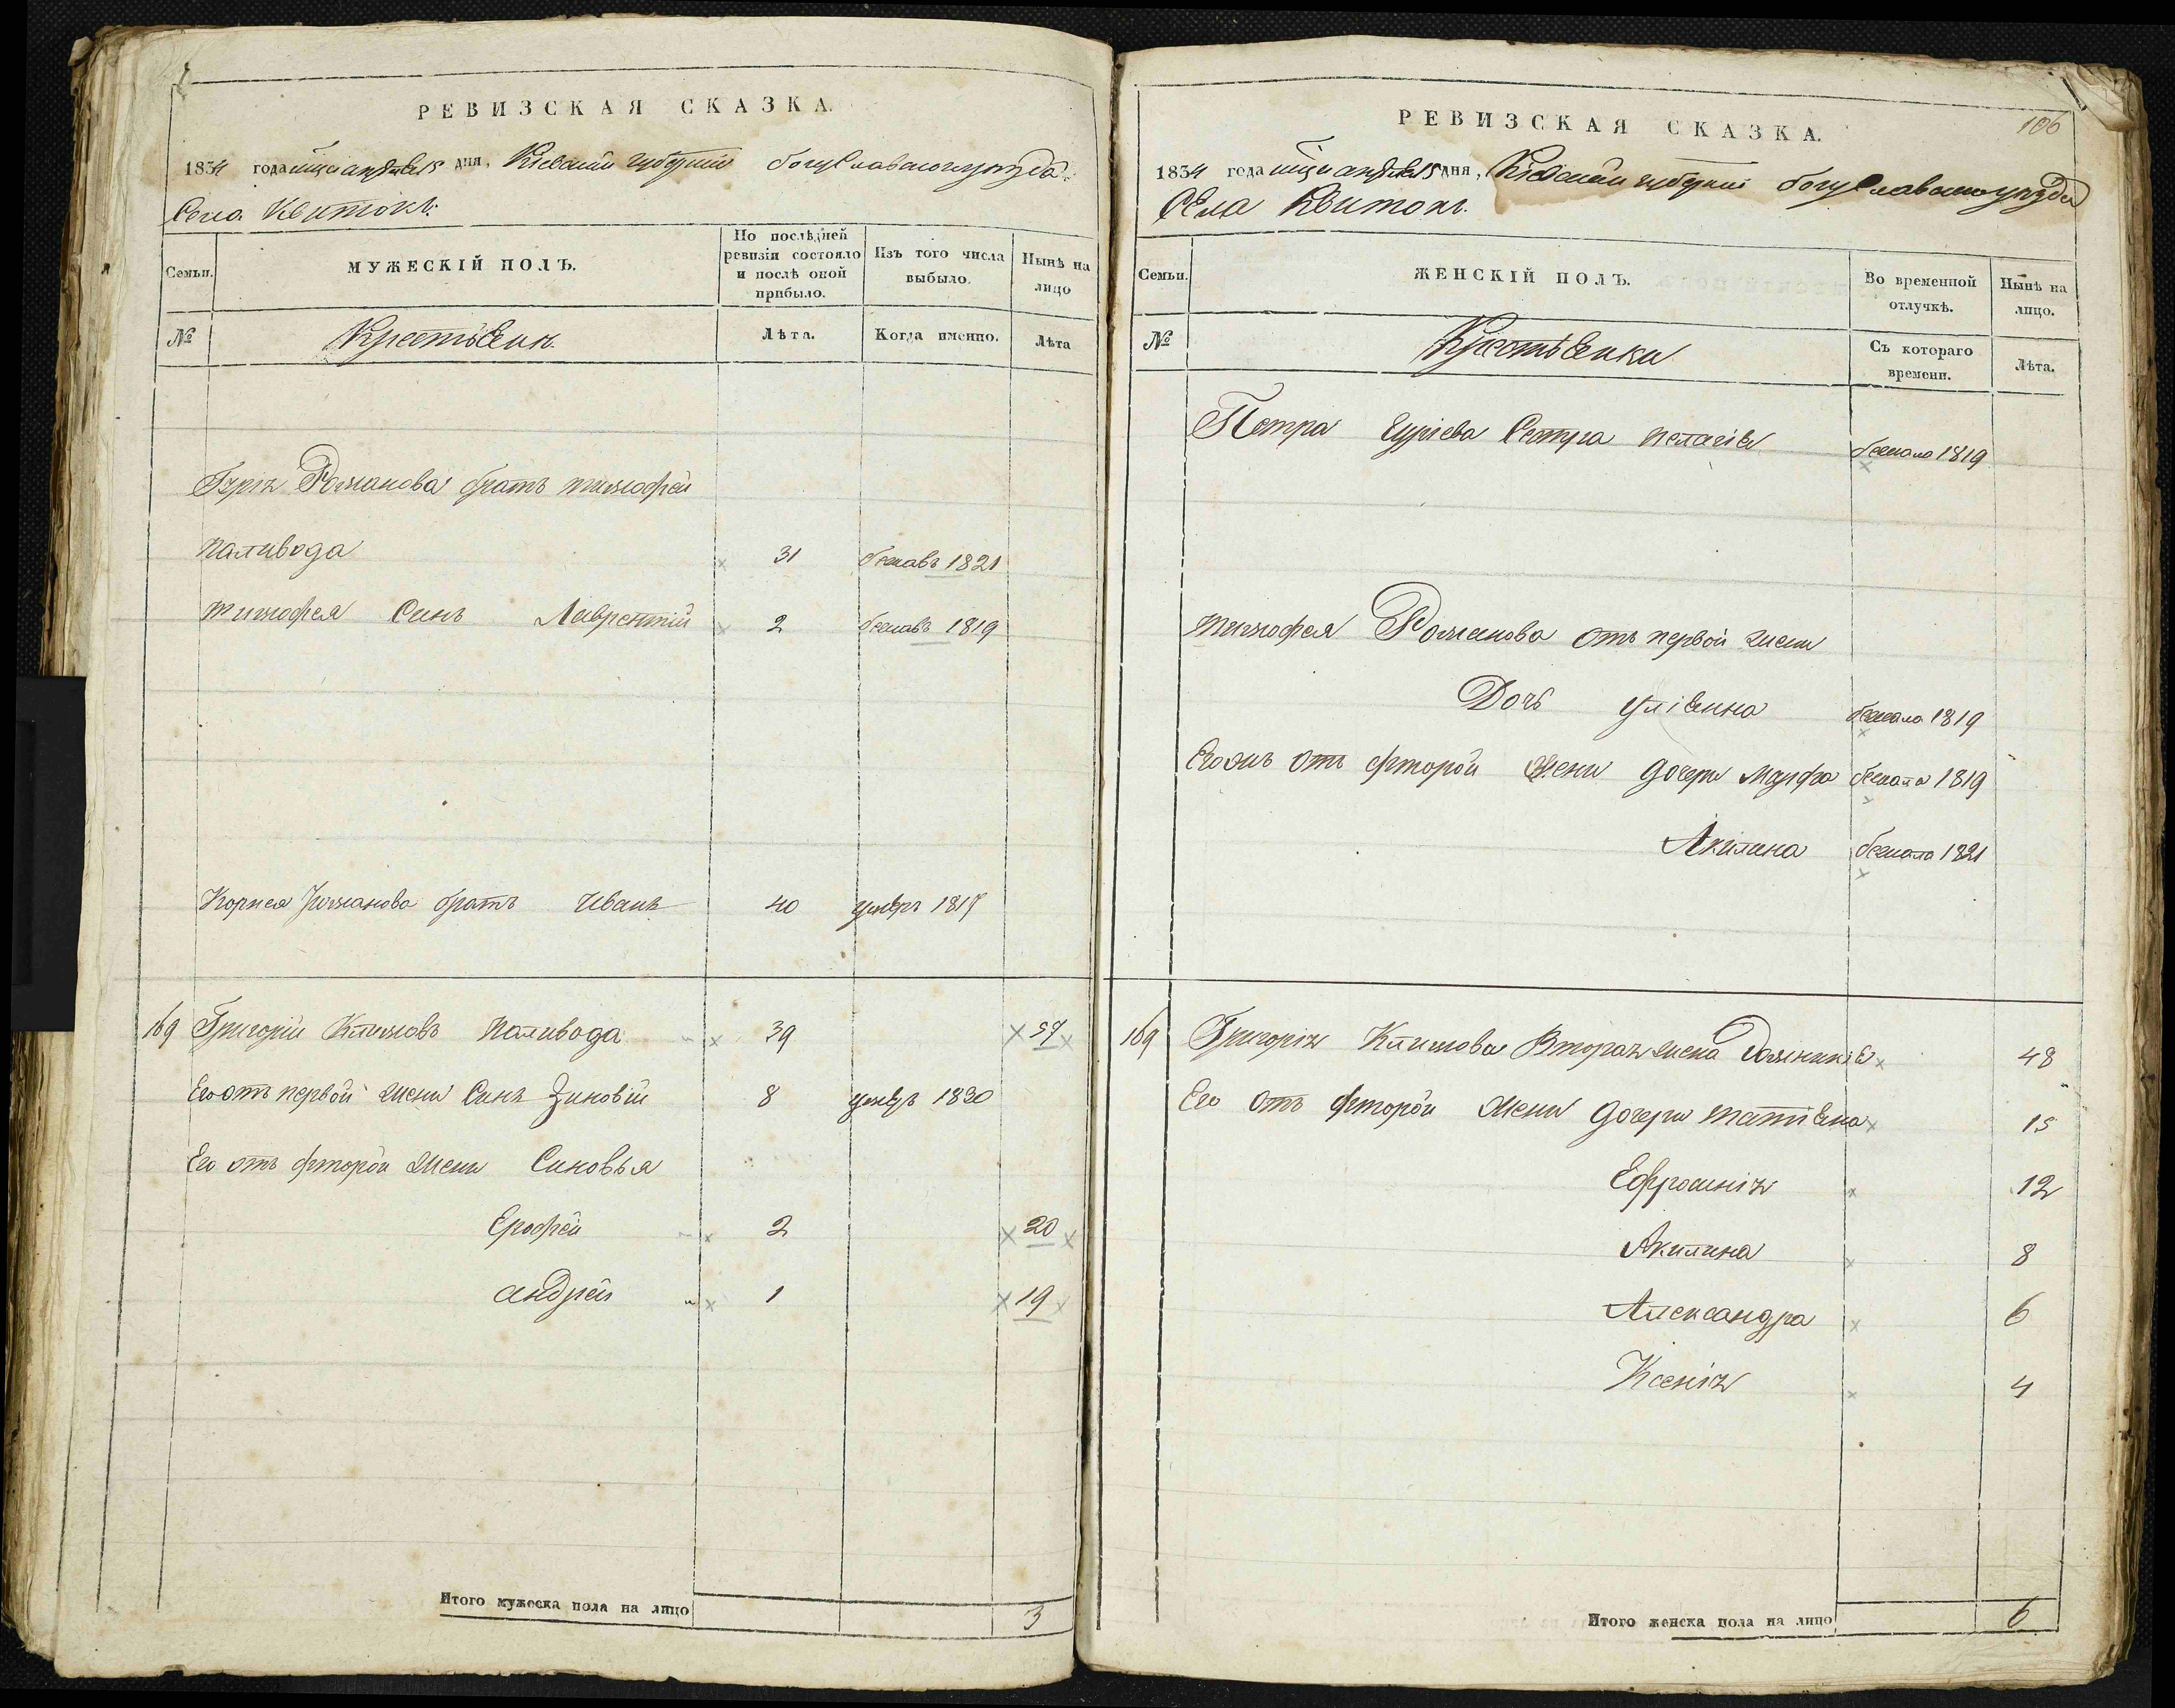 РЕВИЗСКАЯ СКАЗКА.
1834 года мца апреля 15 дня, Кіевской губерніи богуславскогуезда.
Села Квитокъ.
Семьи.
МУЖЕСКІЙ ПОЛЪ.
По послѣдней ревизіи состояло и послѣ оной прибыло.
Изъ того числа выбыло.
Нынѣ на лицо
№
Крестьяня
Лѣта.
Когда именно.
Лѣта
Гурія Романова братъ тимофей
паливода 31 бежавъ 1821
тимофея Синъ Лаврентій 2 бежавъ 1819
Корнея Романова братъ Иванъ 40 умеръ 1817
169 Григорій Климовъ паливода 39 57
Его отъ первой жени Синъ Зиновій 8 умеръ 1830
Его отъ фторой жени Синовья
Ерофей 2 20
андрей 1 19
Итого мужеска пола на лицо 3
106
РЕВИЗСКАЯ СКАЗКА.
1834 года мца апреля 15 дня, Кіевской губерніи богуславскогуезда
Села Квитокъ.
Семьи.
ЖЕНСКІЙ ПОЛЪ.
Во временной отлучкѣ.
Нынѣ на лицо.
№
Крестьянки
Съ котораго времени.
Лѣта.
Петра гуріева Сестра пелагія бежала 1819
тимофея Романова отъ первой жени
Дочь уліянна бежала 1819
Егожъ отъ фторой жени дочери Марфа бежала 1819
Акилина бежала 1821
169 Григорія Климова Вторая жена Домникія 48
Его отъ фторой жени дочери татіяна 15
Ефросинія 12
Акилина 8
Александра 6
Ксенія 4
Итого женска пола на лицо 6